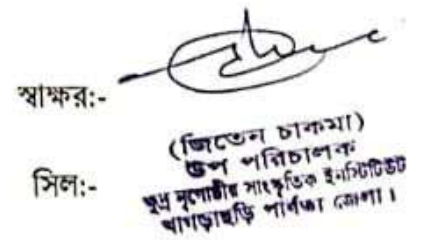 স্বাক্ষর:-
(জিতেন চাকমা)
উপ পরিচালক
সিল:-
ক্ষুদ্র নৃগোষ্ঠীর সাংস্কৃতিক ইনস্টিটিউট
খাগড়াছড়ি পার্বত্য জেলা।